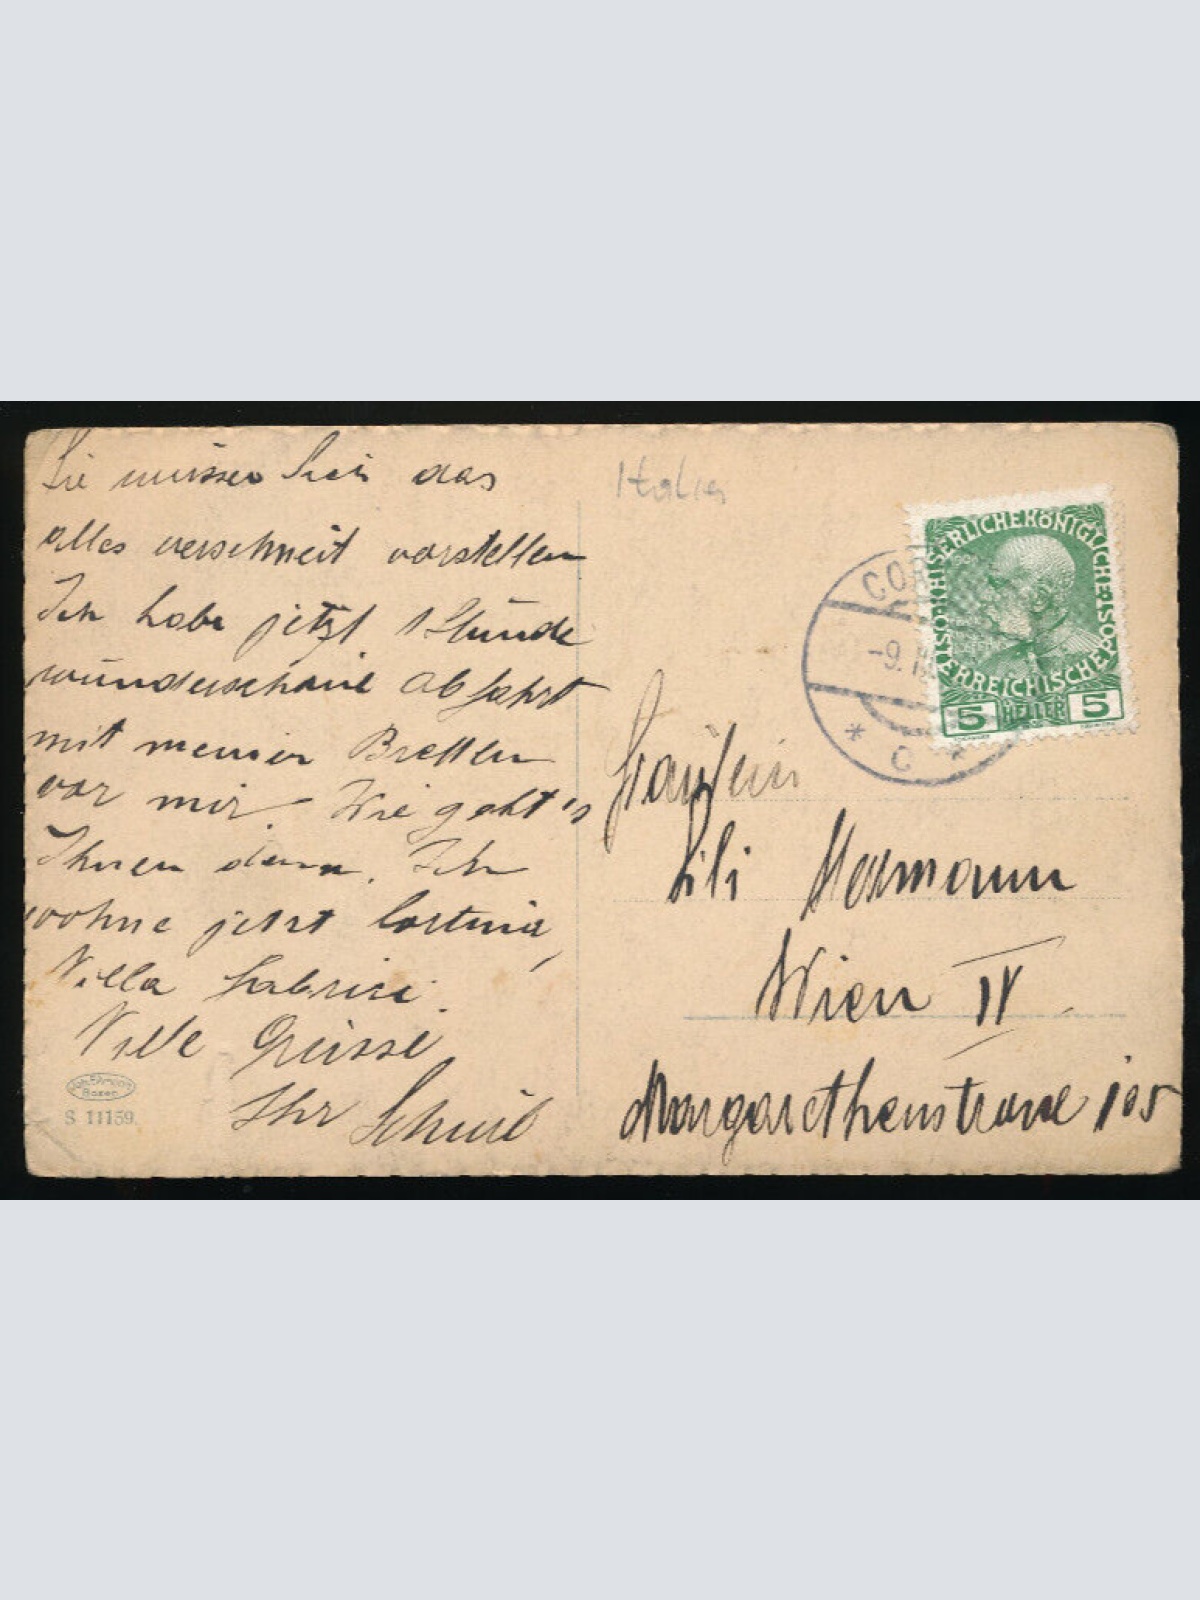 Sie müssen sich das
alles verschneit vorstellen
Ich habe jetzt 1 Stunde
wunderschöne Abfahrt
mit meinen Brettln
vor mir. Wie geht's
Ihnen denn. Ich
wohne jetzt Cortina,
Villa
Viele Grüsse
Ihr
Joh. F. Amonn
Bozen
S 11159.
Italia
KAISERLICHE KÖNIGLICHE ÖSTERREICHISCHE POST
5 HELLER 5
COR
-9. I
* C *
Fräulein
Lili
Wien IV
Margarethenstrasse 105